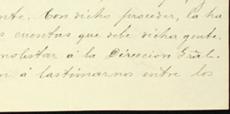 nte. Con dicho proceder, la ha
s cuentas que debe dicha gente.
molestar á la Dirección Gral.
n á lastimarnos entre los